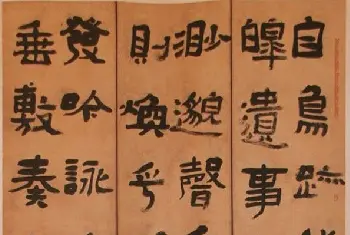 自鳥跡
皞遺事
渺邈聲
則煥乎
發吟詠
垂敷奏